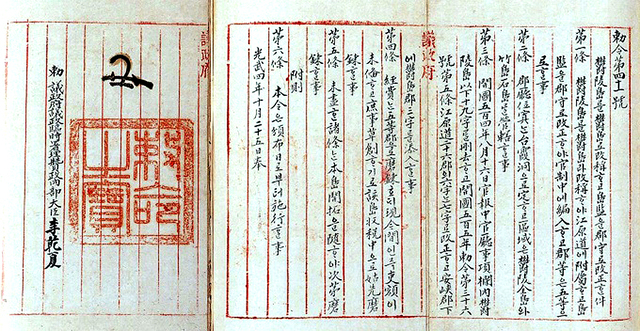 勅令第四十一號
鬱陵島를鬱島로改稱ᄒᆞ고島監을郡守로改正ᄒᆞᆫ件
第一條 鬱陵島를鬱島라改稱ᄒᆞ야江原道에附屬ᄒᆞ고島
監을郡守로改正ᄒᆞ야官制中에編入ᄒᆞ고郡等은五等으
로ᄒᆞᆯ事
第二條 郡廳位寘는台霞洞으로定ᄒᆞ고區域은鬱陵全島와
竹島石島를管轄ᄒᆞᆯ事
第三條 開國五百四年八月十六日官報中官廳事項欄內鬱
陵島以下十九字를刪去ᄒᆞ고開國五百五年勅令第三十六
號第五條江原道二十六郡의六字는七字로改正ᄒᆞ고安峽郡下
議政府
에鬱島郡三字를添入ᄒᆞᆯ事
第四條 經費는五等郡으로磨鍊호되現今間인즉吏額이
未備ᄒᆞ고庶事草創ᄒᆞ기로該島收稅中으로姑先磨
鍊ᄒᆞᆯ事
第五條 未盡ᄒᆞᆫ諸條는本島開拓을隨ᄒᆞ야次第磨
鍊ᄒᆞᆯ事
附則
第六條 本令은頒布日로부터施行ᄒᆞᆯ事
光武四年十月二十五日奉
議政府
勅命之寶
勅 議政府議政臨時署理贊政內部大臣 李乾夏